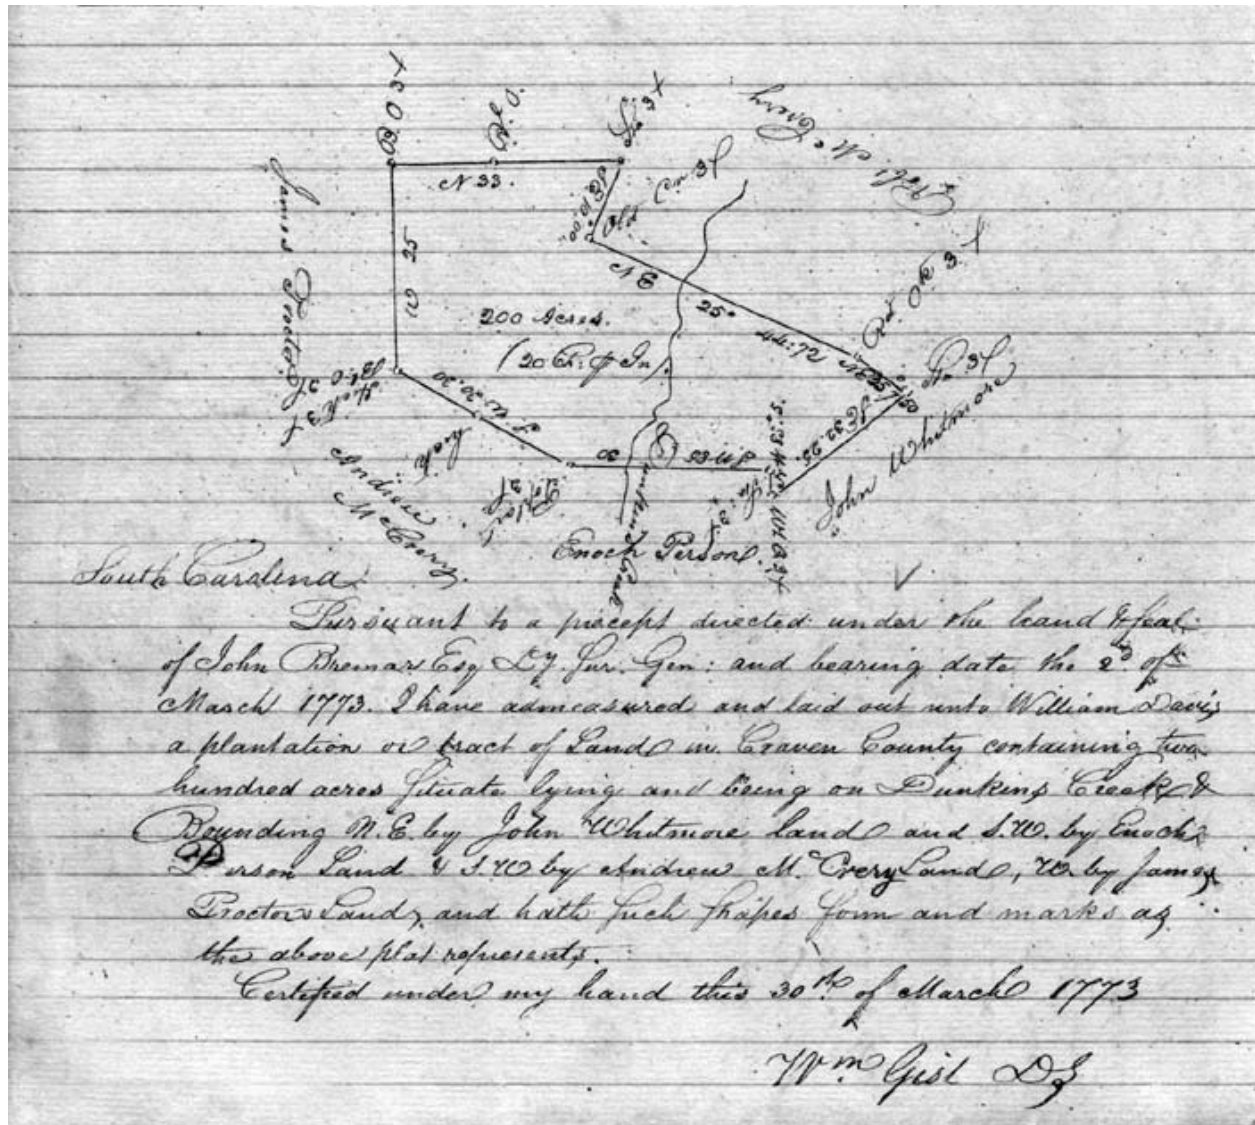 B.O 3X
N 33.
Old Cor 3X
James Proctor
W 25
N E
25°
44:72
Rd Ok 3X
200 Acres.
(20 Ch. pr In)
John Whitmore
S E 32.25.
S W 20.20
30
Andrew
McCrery.
Enoch Person.
Dunkins Creek
South Carolina
Pursuant to a precept directed under the hand & seal
of John Bremar Esq Dy. Sur. Gen: and bearing date the 2d of
March 1773. I have admeasured and laid out unto William Davis
a plantation or tract of Land in Craven County containing two
hundred acres situate lying and being on Dunkins Creek &
Bounding N.E. by John Whitmore land and S.W. by Enoch
Person Land & S.W by Andrew Mc Crery Land, W. by James
Proctors Land, and hath such shapes form and marks as
the above plat represents.
Certified under my hand this 30th of March 1773
Wm Gist DS